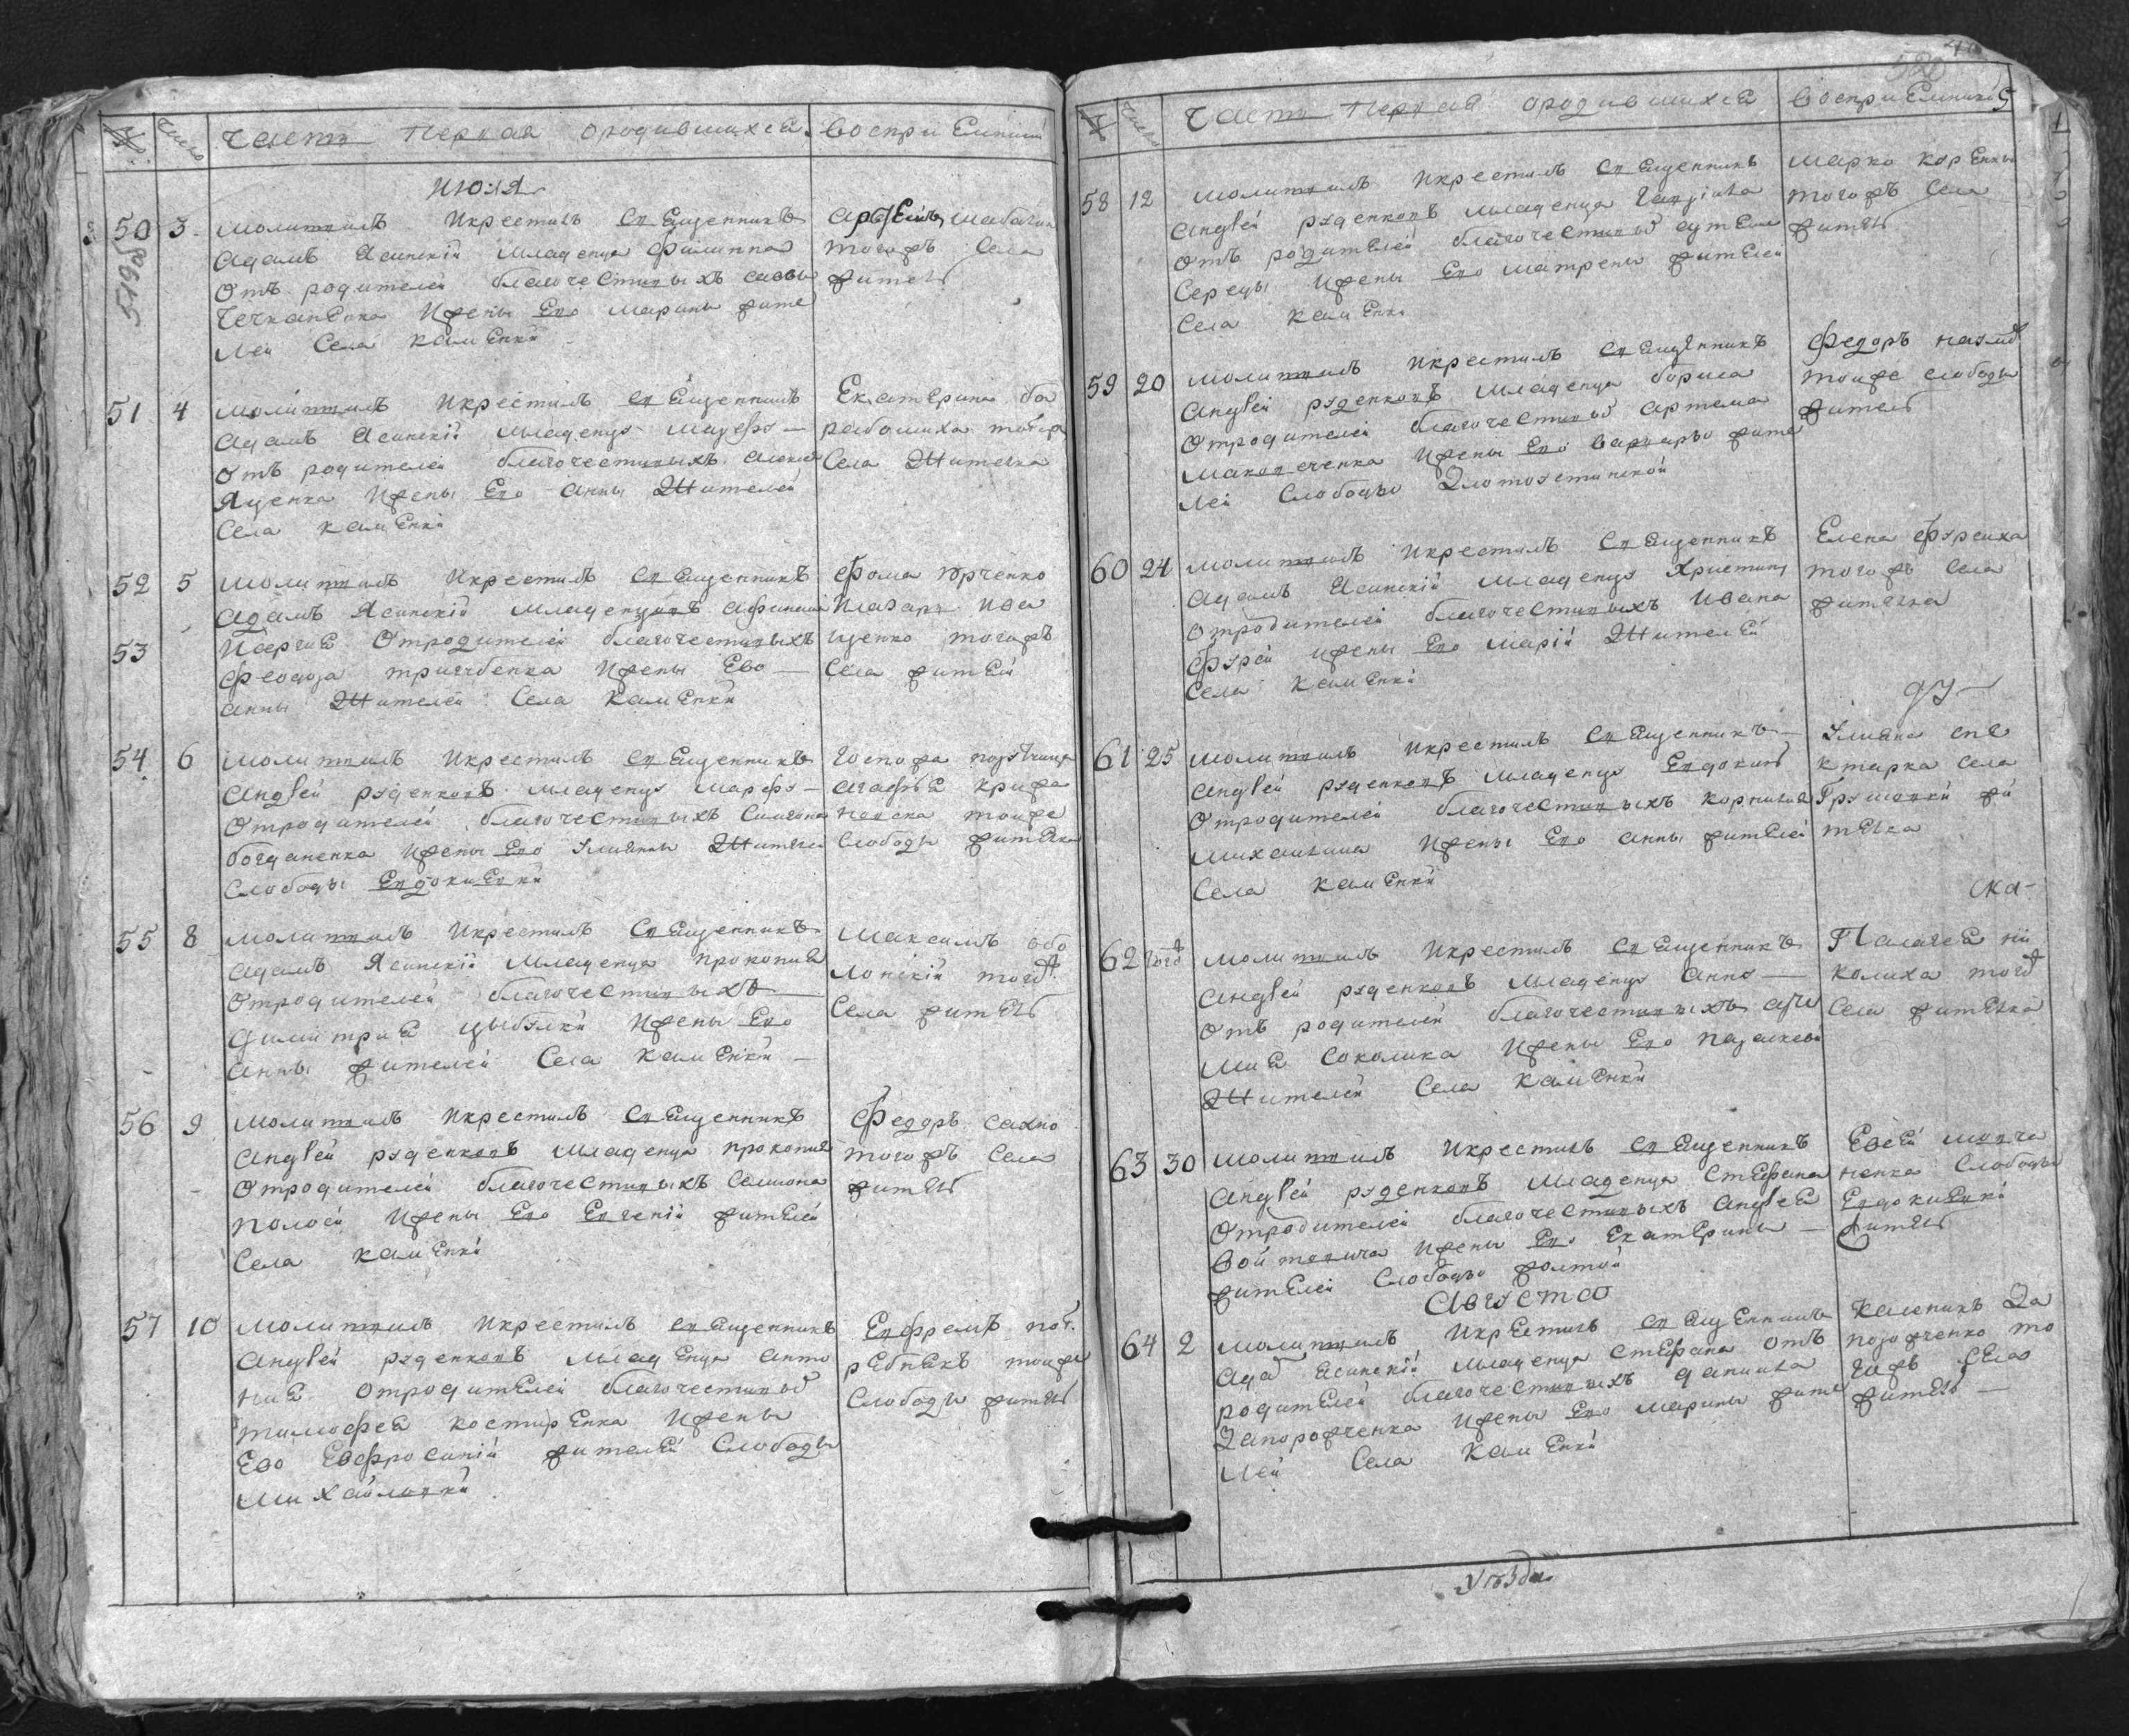 № Число Часть Первая ородившихся. воспріемники
июля
50 3 Молитвилъ Икрестилъ Священникъ
Адамъ Ясинскій Младенца Филиппа
Отъ родителей благочестивыхъ саввы
Чечканенка Ижены Ево Марины жите
лей Села Каменки
тогожъ Села
житель
519об
51 4 Молитвилъ Икрестилъ Священникъ
Адамъ Ясинскій Младенцу Марфу
Отъ родителей благочестивыхъ
Яценка Ижены Ево Анны Жителей
Села Каменки
Екатерина ба
рабошиха тогожъ
Села Жителка
52 5 Молитвилъ Икрестилъ Священникъ
53 Адамъ Ясинскій Младенцовъ Афанасия
Исергия Отродителей благочестивыхъ
Феодора Ижены Ево
Анны Жителей Села Каменки
Фома Юрченко
Илазарь Ива
щенко тогожъ
Села жители
54 6 Молитвилъ Икрестилъ Священникъ
Андрей руденковъ Младенцу Марфу
Отродителей благочестивыхъ Симеона
богданенка Ижены Ево Улияны Жителей
Слободы Евдокиевки
Госпожа
агафия крижа
новска тоижъ
Слободы жителка
55 8 Молитвилъ Икрестилъ Священникъ
Адамъ Ясинскій Младенца Прокопия
Отродителей благочестивыхъ
Димитрия цыбулки Ижены Ево
Анны жителей Села Каменки
Максимъ обо
лонскій тогожъ
Села житель
56 9 Молитвилъ Икрестилъ Священникъ
Андрей руденковъ Младенца прокопия
Отродителей благочестивыхъ Семиона
Ижены Ево Евгеніи жителей
Села Каменки
Федоръ сахно
тогожъ Села
житель
57 10 Молитвилъ Икрестилъ Священникъ
Андрей руденковъ Младенца Анто
ния Отродителей благочестивых
Тимофея Костиренка Ижены
Ево Евфросиніи жителей Слободы
Михайловки
Евфремъ пог
ребнякъ тоижъ
Слободы житель
№ Число Часть Первая ородившихся воспріемники
58 12 Молитвилъ Икрестилъ Священникъ
Андрей руденковъ Младенца Гавріила
Отъ родителей благочестивых
Середы Ижены Ево Матрены жителей
Села Каменки
Марко Коренны
тогожъ Села
житель
59 20 Молитвилъ Икрестилъ Священникъ
Андрей руденковъ Младенца бориса
Отродителей благочестивых артема
Маковеченка Ижены Ево варвары жите
лей Слободы Злотоустинской
Федоръ
тоиже слободы
житель
60 24 Молитвилъ Икрестилъ Священникъ
Адамъ Ясинскій Младенцу Христину
Отродителей благочестивыхъ Ивана
Фурси ижены Ево Маріи Жителей
Села Каменки
Елена Фурсиха
тогожъ Села
жителка
61 25 Молитвилъ Икрестилъ Священникъ
Андрей руденковъ Младенцу Евдокию
Отродителей благочестивыхъ корнилия
Михаилина Ижены Ево анны жителей
Села Каменки
Улияна спе
ктарка села
Грушовки жи
телка
62 Молитвилъ Икрестилъ Священникъ
Андрей руденковъ Младенцу Анну
Отъ родителей благочестивыхъ ари
мия Соколика Ижены Ево параскевы
Жителей Села Каменки
Палагея ни
колиха тогожъ
Села жителка
63 30 Молитвилъ Икрестилъ Священникъ
Андрей руденковъ Младенца Стефана
Отродителей благочестивыхъ Андрея
Войтовича Ижены Ево Екатерины
жителей Слободы жолтой
Евсей мовча
ненка Слободы
Евдокиевки
житель
Августа
64 2 Молитвилъ Икрестилъ Священникъ
Адам Ясинскій Младенца Стефана Отъ
родителей благочестивыхъ даниила
Запорожченка Ижены Ево Марины жите
лей Села Каменки
Каленикъ За
порожченко то
гожъ Села
житель